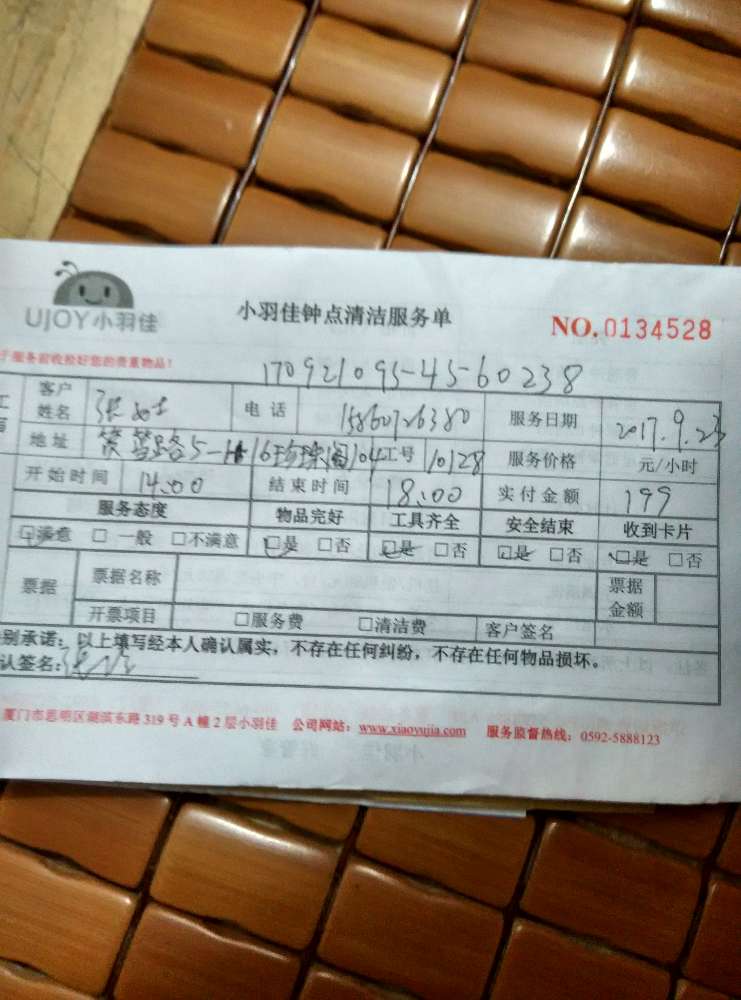 UJOY小羽佳
小羽佳钟点清洁服务单
NO.0134528
于服务前收捡好您的贵重物品！
170921095-45-60238
客户姓名 张女士 电话 15860726380 服务日期 2017.9.23
地址 筼筜路5-16珍珠阁104 工号 10128 服务价格 元/小时
开始时间 14:00 结束时间 18:00 实付金额 199
服务态度 物品完好 工具齐全 安全结束 收到卡片
☑满意 □一般 □不满意 ☑是 □否 ☑是 □否 ☑是 □否 ☑是 □否
票据 票据名称 票据金额
开票项目 □服务费 □清洁费 客户签名
别承诺：以上填写经本人确认属实，不存在任何纠纷，不存在任何物品损坏。
认签名：
厦门市思明区湖滨东路319号A幢2层小羽佳 公司网站：www.xiaoyujia.com 服务监督热线：0592-5888123